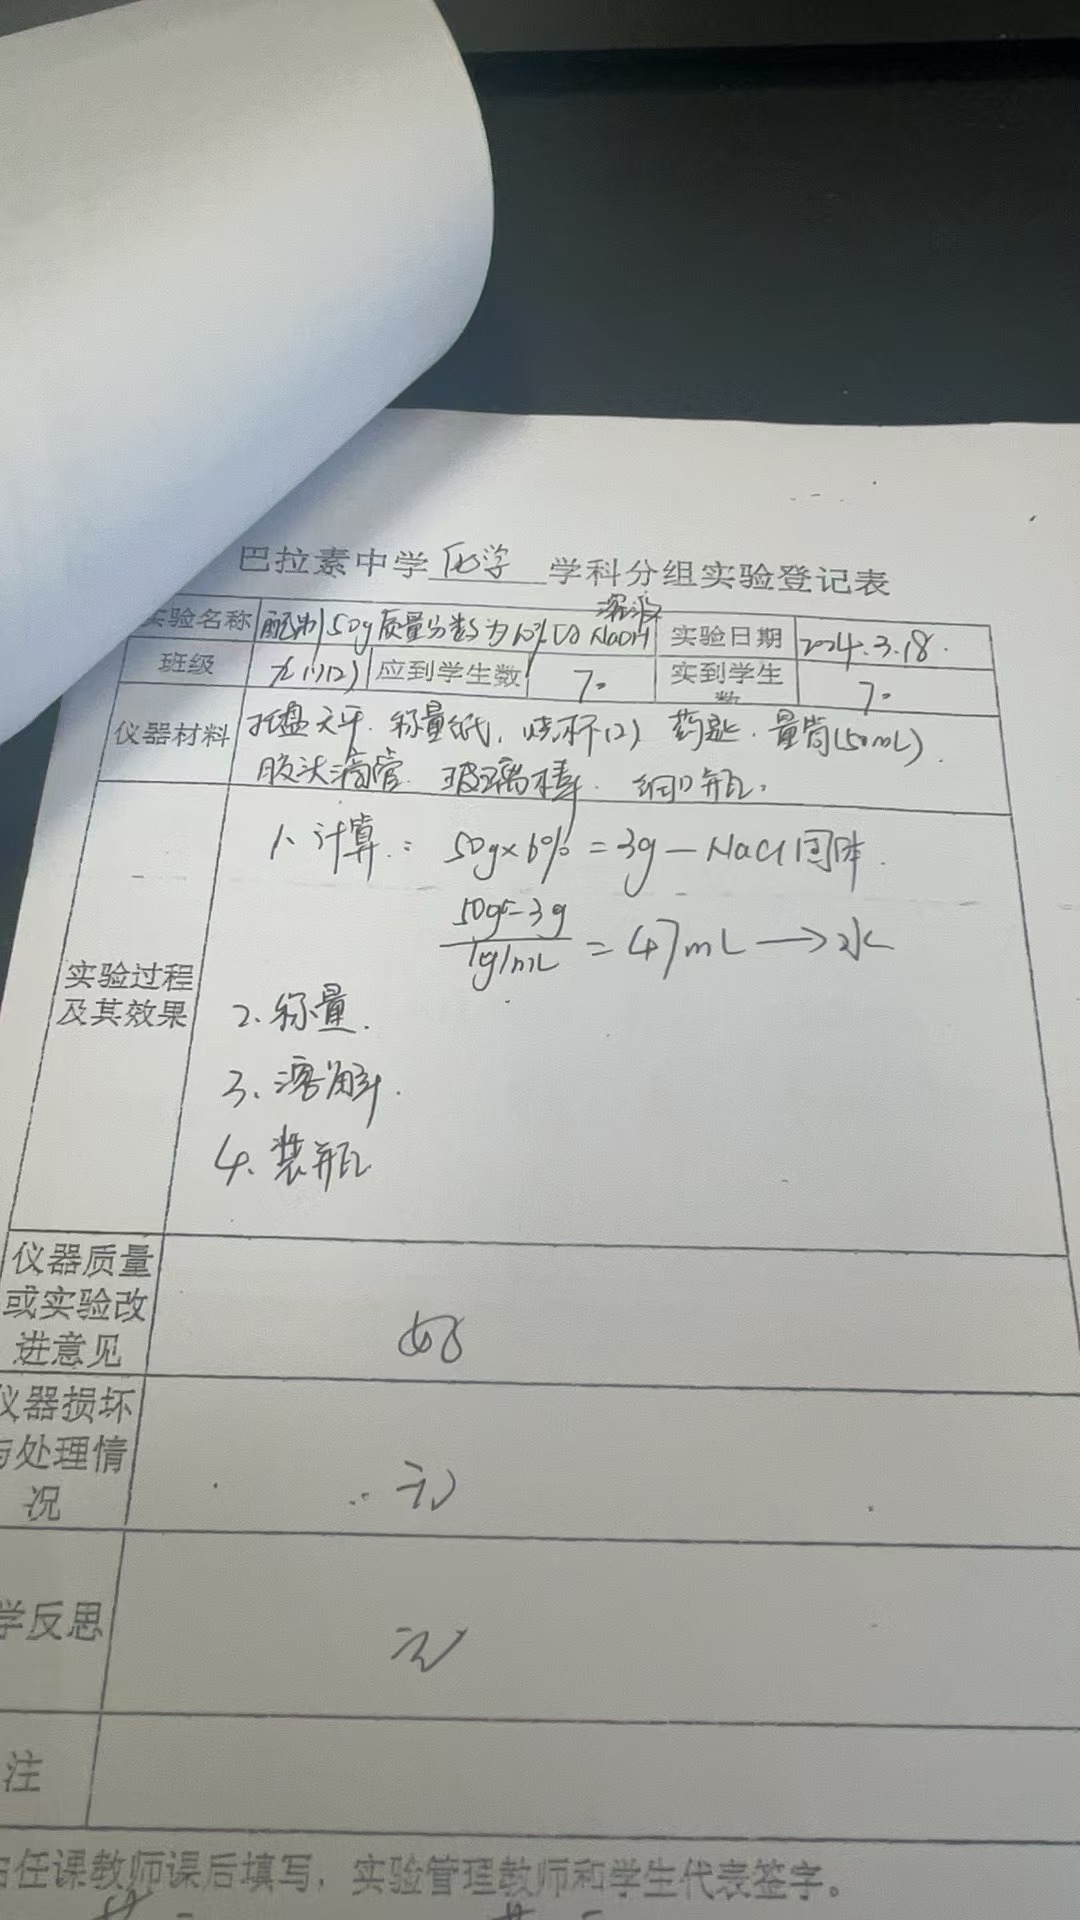 巴拉素中学 化学 学科分组实验登记表
实验名称 配制50g质量分数为6%的NaOH溶液 实验日期 2024.3.18.
班级 九(1)(2) 应到学生数 70 实到学生数 70
仪器材料 托盘天平. 称量纸. 烧杯(2) 药匙. 量筒(50mL).
胶头滴管. 玻璃棒. 细口瓶.
实验过程及其效果
1、计算: 50g×6%=3g—NaCl固体.
50g-3g
1g/mL
=47mL→水
2、称量.
3、溶解.
4、装瓶
仪器质量或实验改进意见 好
仪器损坏与处理情况 无
学反思 无
注
任课教师课后填写，实验管理教师和学生代表签字。